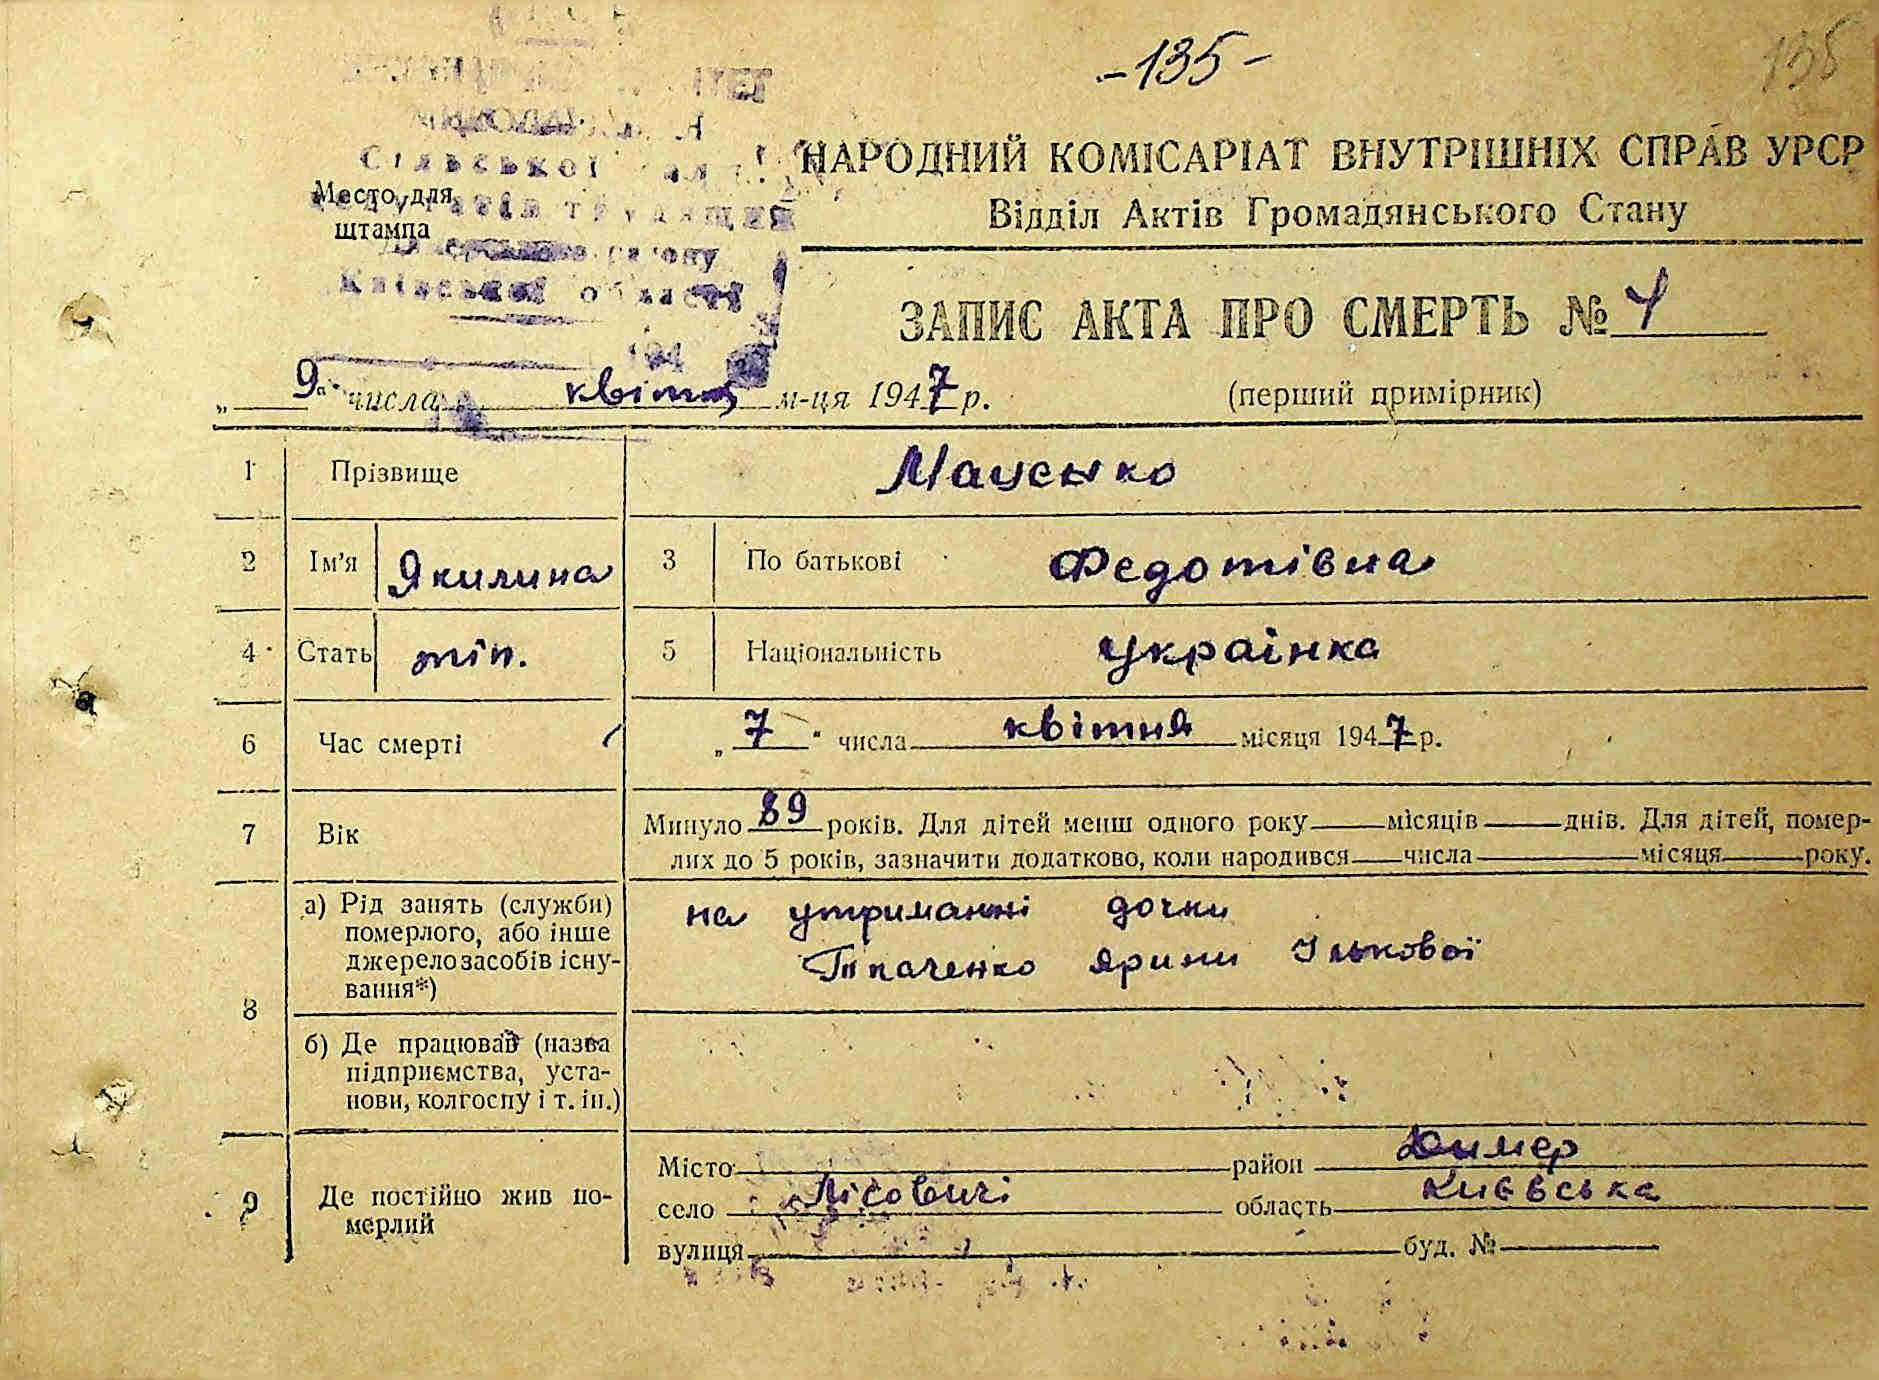 -135-
135
Сільської
Место для
штампа
району
Київської області
194
НАРОДНИЙ КОМІСАРІАТ ВНУТРІШНІХ СПРАВ УРСР
Відділ Актів Громадянського Стану
ЗАПИС АКТА ПРО СМЕРТЬ № 4
„ 9 “ числа квітня м-ця 1947 р. (перший примірник)
1 Прізвище Маценко
2 Ім'я Якилина 3 По батькові Федотівна
4 Стать жін. 5 Національність українка
6 Час смерті „ 7 “ числа квітня місяця 1947 р.
7 Вік Минуло 89 років. Для дітей менш одного року місяців днів. Для дітей, помер-
лих до 5 років, зазначити додатково, коли народився числа місяця року.
8 а) Рід занять (служби)
померлого, або інше
джерело засобів існу-
вання*)
на утриманні дочки
Ткаченко Ярини Ількової
б) Де працював (назва
підприємства, уста-
нови, колгоспу і т. ін.)
9 Де постійно жив по-
мерлий
Місто район Димер
село Лісовичі область Київська
вулиця буд. №